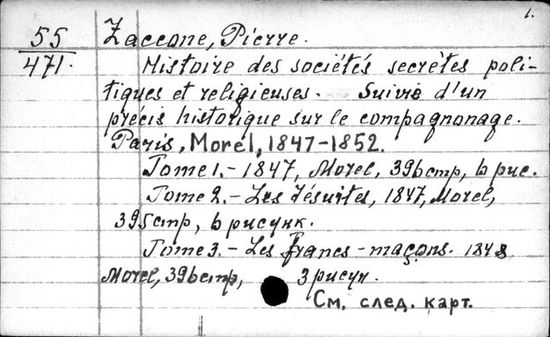 1.
55
471.
Zaccone, Pierre.
Histoire des sociétés secrètes poli-
tiques et religieuses. Suivie d'un
précis historique sur le compagnonage.
Paris, Morel, 1847-1852.
Tome 1. - 1847, Morel, 396 стр, 6 рис.
Tome 2. - Les Jésuites, 1847, Morel,
395 стр, 6 рисунк.
Tome 3. - Les Francs-maçons. 1848
Morel, 396 стр, 3 рисун.
См. след. карт.